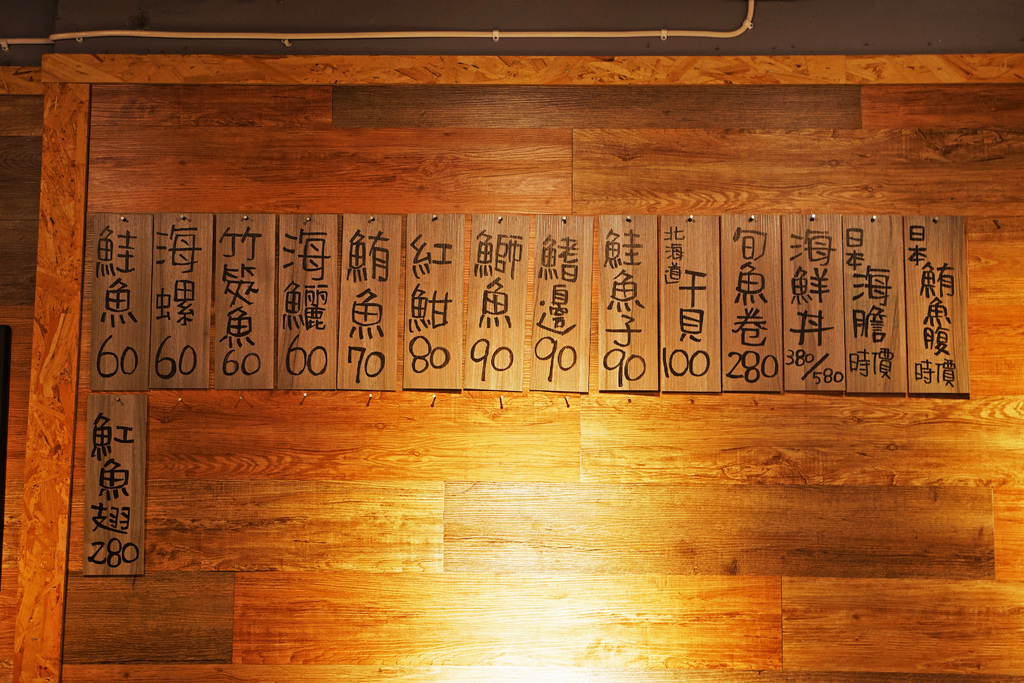 鮭魚 60
海螺 60
竹筴魚 60
海鱺 60
鮪魚 70
紅魽 80
鰤魚 90
鰭邊 90
鮭魚子 90
北海道干貝 100
旬魚卷 280
海鮮丼 380/580
日本海膽 時價
日本鮪魚腹 時價
魟魚翅 280